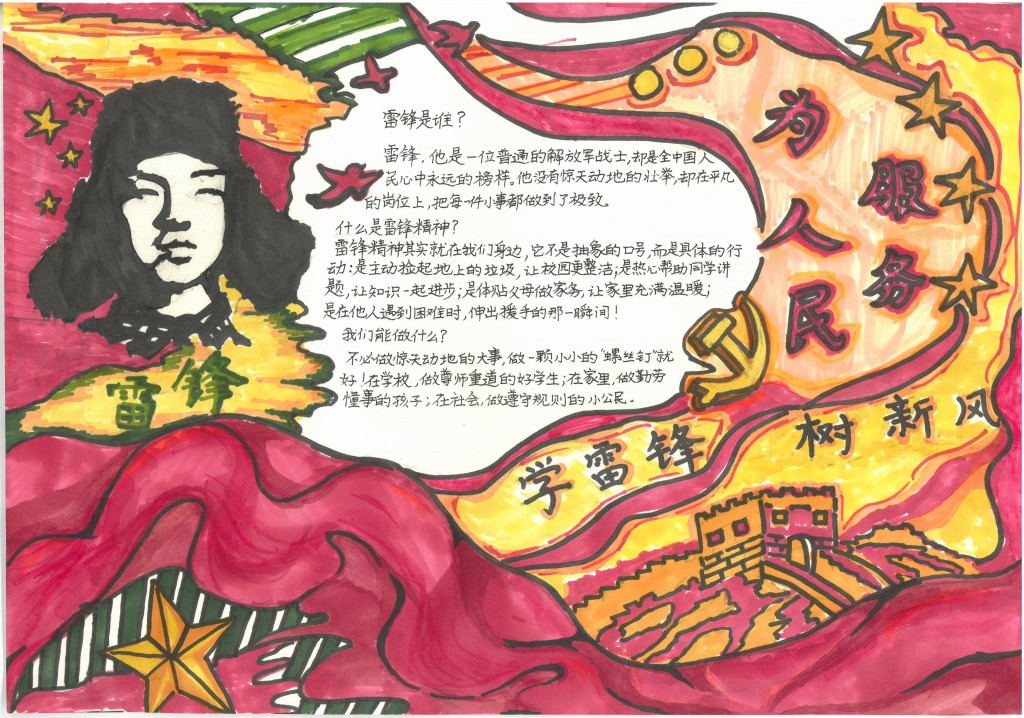 雷锋是谁?
雷锋,他是一位普通的解放军战士,却是全中国人
民心中永远的榜样。他没有惊天动地的壮举,却在平凡
的岗位上,把每一件小事都做到了极致。
什么是雷锋精神?
雷锋精神其实就在我们身边,它不是抽象的口号,而是具体的行
动:是主动捡起地上的垃圾,让校园更整洁;是热心帮助同学讲
题,让知识一起进步;是体贴父母做家务,让家里充满温暖;
是在他人遇到困难时,伸出援手的那一瞬间!
我们能做什么?
不必做惊天动地的大事,做一颗小小的“螺丝钉”就
好!在学校,做尊师重道的好学生;在家里,做勤劳
懂事的孩子;在社会,做遵守规则的小公民。
为人民
服务
雷锋
学雷锋
树新风